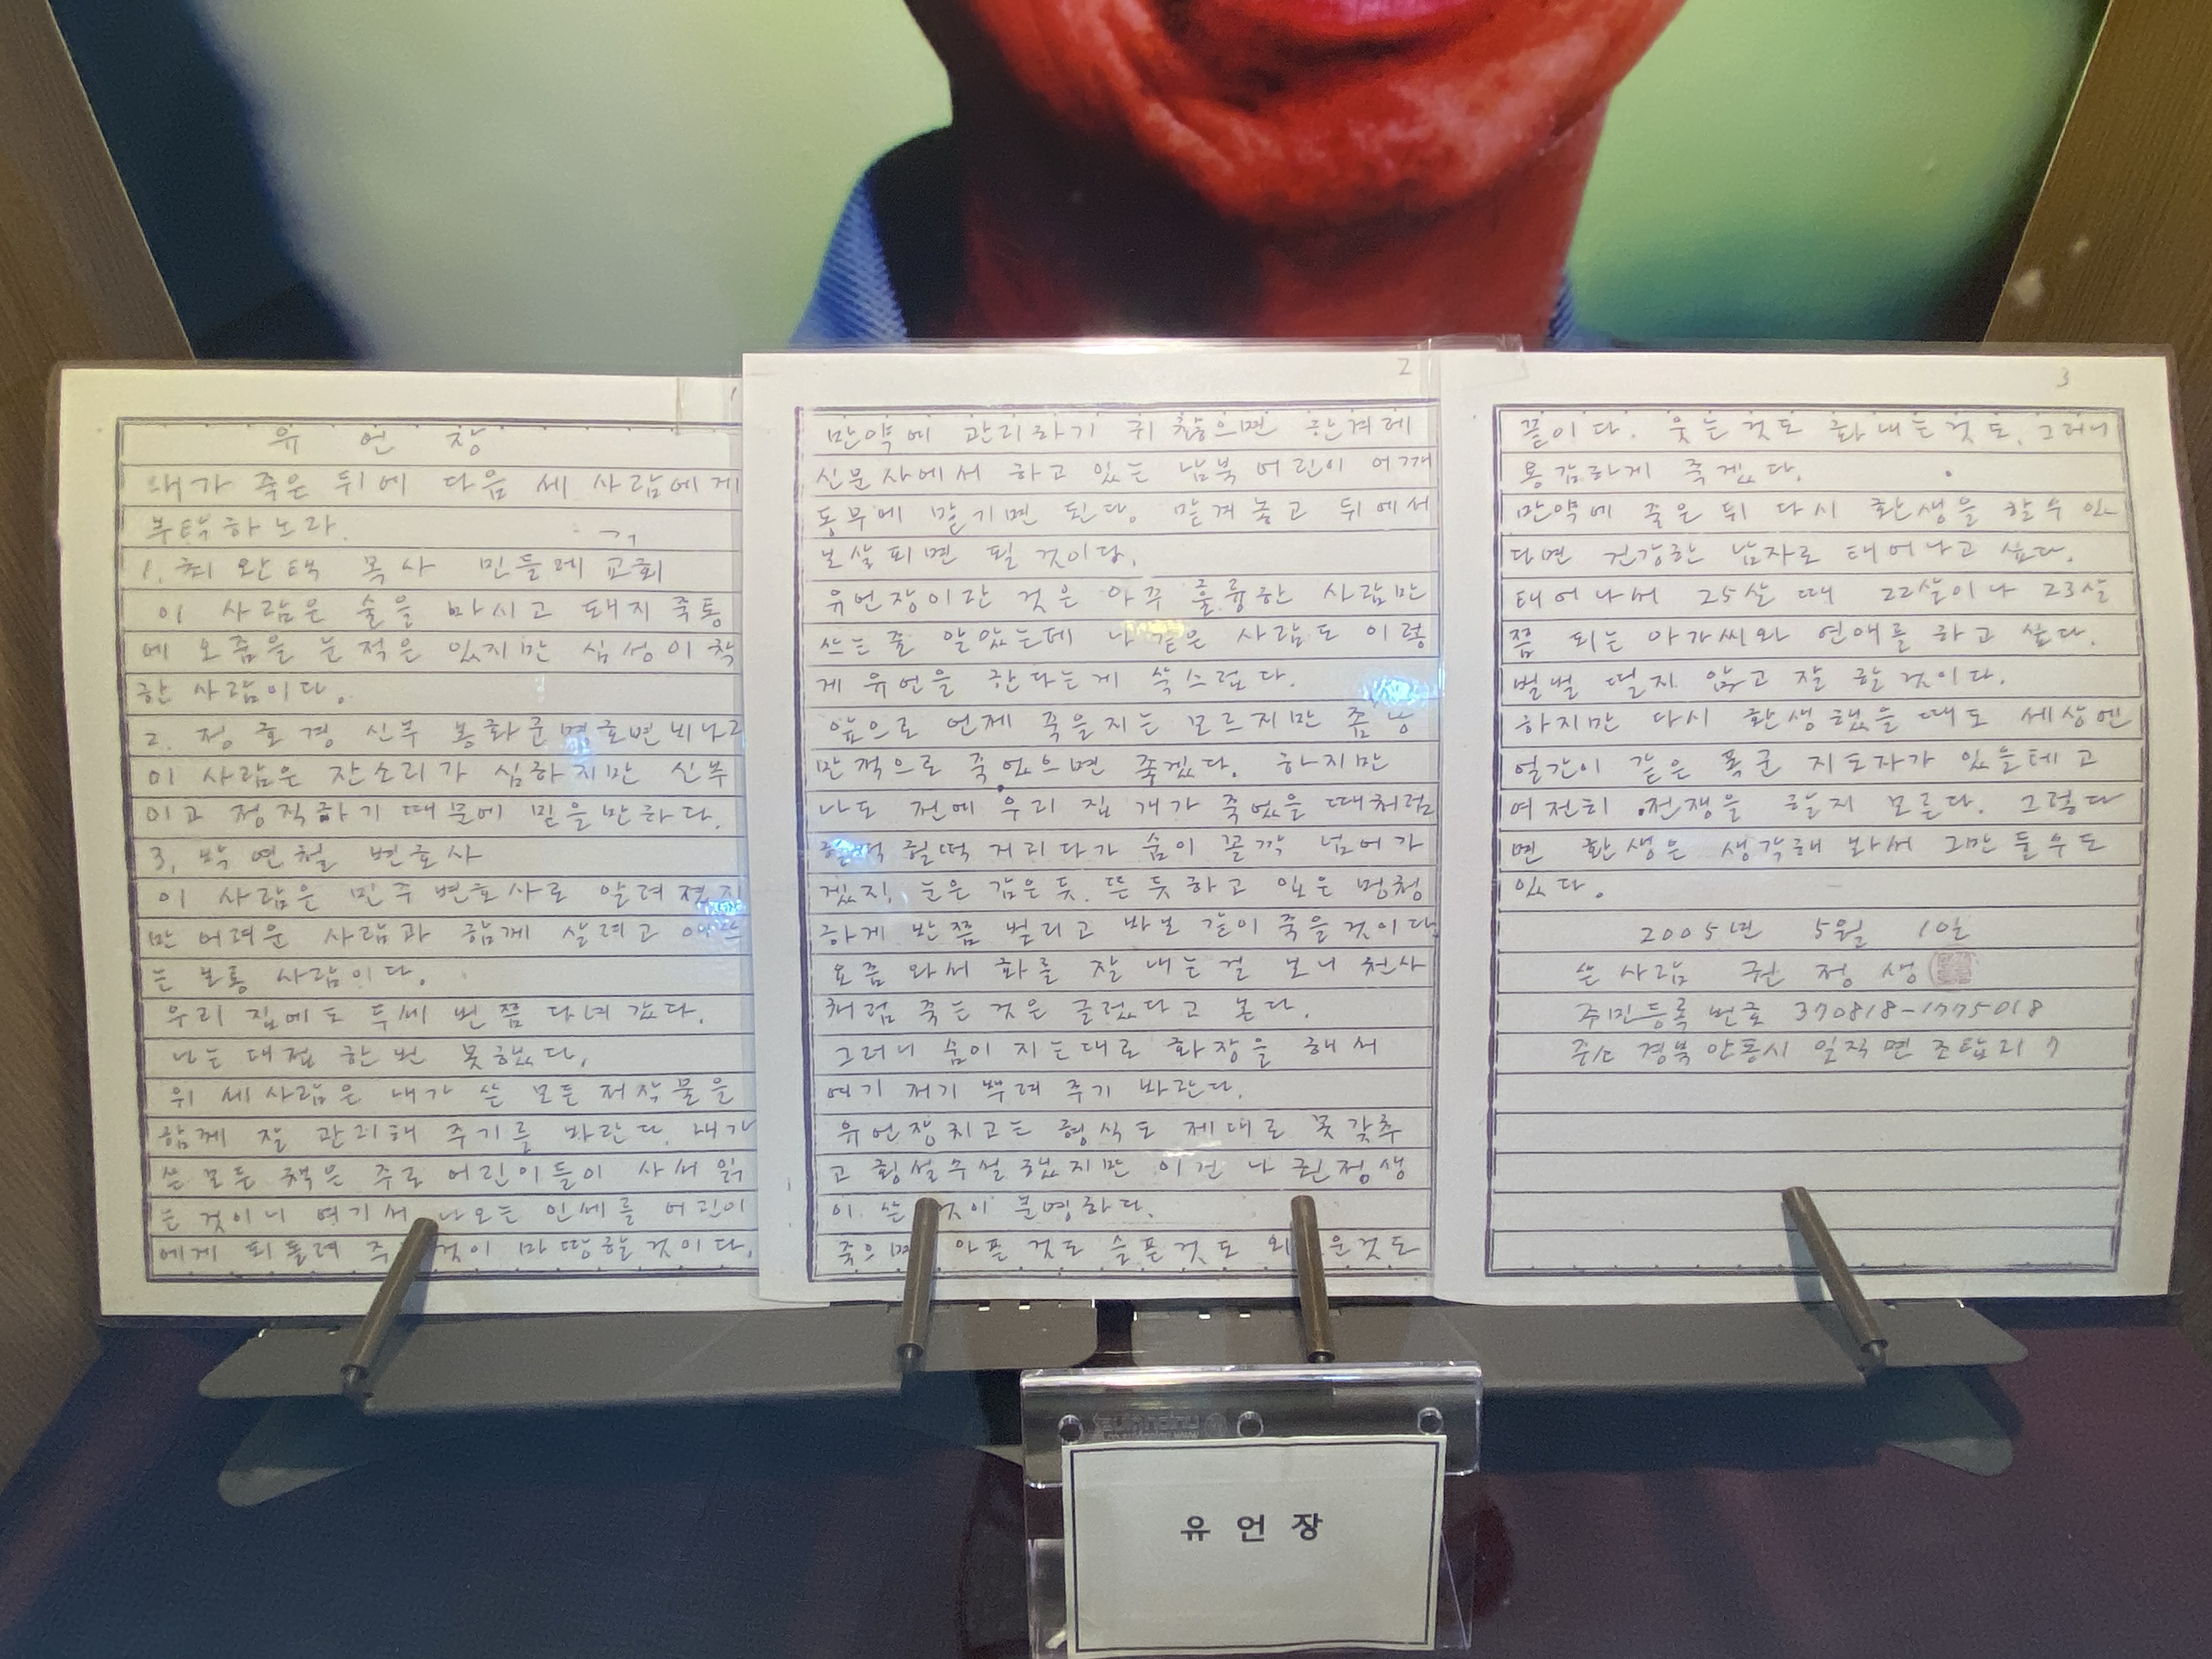 1
유 언 장
내가 죽은 뒤에 다음 세 사람에게
부탁하노라.
1. 최 완택 목사 민들레 교회
이 사람은 술을 마시고 돼지 죽통
에 오줌을 눈 적은 있지만 심성이 착
한 사람이다.
2. 정 호경 신부 봉화군 명호면 비나리
이 사람은 잔소리가 심하지만 신부
이고 정직하기 때문에 믿을만하다.
3. 박 연철 변호사
이 사람은 민주변호사로 알려졌지
만 어려운 사람과 함께 살려고 애쓰
는 보통 사람이다.
우리 집에도 두세 번쯤 다녀갔다.
나는 대접 한 번 못했다.
위 세 사람은 내가 쓴 모든 저작물을
함께 잘 관리해 주기를 바란다. 내가
쓴 모든 책은 주로 어린이들이 사서 읽
는 것이니 여기서 나오는 인세를 어린이
에게 되돌려 것이 마땅할것이다.
2
만약에 관리하기 귀찮으면 한겨레
신문사에서 하고 있는 남북 어린이 어깨
동무에 맡기면 된다. 맡겨놓고 뒤에서
보살피면 될 것이다.
유언장이란 것은 아주 훌륭한 사람만
쓰는 줄 알았는데 나 같은 사람도 이렇
게 유언을 한다는게 쑥스럽다.
앞으로 언제 죽을지는 모르지만 좀 낭
만적으로 죽었으면 좋겠다. 하지만
나도 전에 우리 집 개가 죽었을 때처럼
헐떡 헐떡 거리다가 숨이 꼴깍 넘어가
겠지. 눈은 감은 듯 뜬 듯하고 입은 멍청
하게 반쯤 벌리고 바보 같이 죽을것이다
요즘 와서 화를 잘 내는 걸 보니 천사
처럼 죽는 것은 글렀다고 본다.
그러니 숨이 지는대로 화장을 해서
여기 저기 뿌려 주기 바란다.
유언장치고는 형식도 제대로 못 갖추
고 횡설수설 했지만 이건 나 권정생
이 쓴 것이 분명하다.
죽으면 아픈 것도 슬픈것도 외로운것도
3
끝이다. 웃는 것도 화내는것도. 그러니
용감하게 죽겠다.
만약에 죽은 뒤 다시 환생을 할 수 있
다면 건강한 남자로 태어나고 싶다.
태어나서 25살 때 22살이나 23살
쯤 되는 아가씨와 연애를 하고 싶다.
벌벌 떨지 않고 잘 할 것이다.
하지만 다시 환생했을 때도 세상엔
얼간이 같은 폭군 지도자가 있을테고
여전히 전쟁을 할지 모른다. 그렇다
면 환생은 생각해 봐서 그만 둘 수도
있다.
2005년 5월 10일
쓴 사람 권 정 생
주민등록 번호 370818-1775018
주소 경북 안동시 일직면 조탑리 7
유 언 장